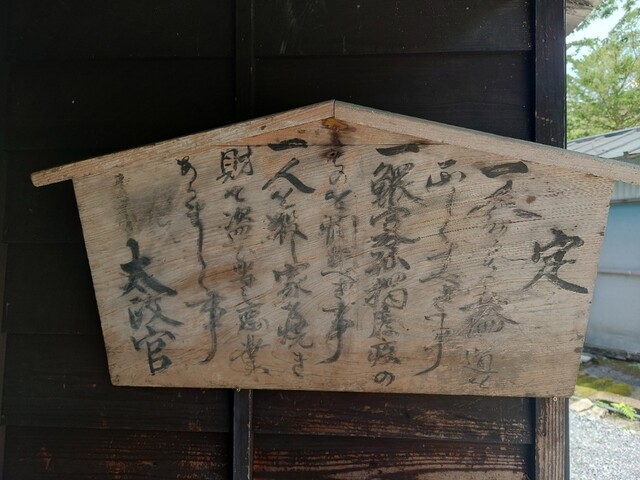 定
一人たるもの五倫の道を
正しくすへき事
一鰥寡孤独廃疾の
ものを憫むへき事
一人を殺し家を焼き
財を盗む等の悪業
あるましく事
太政官